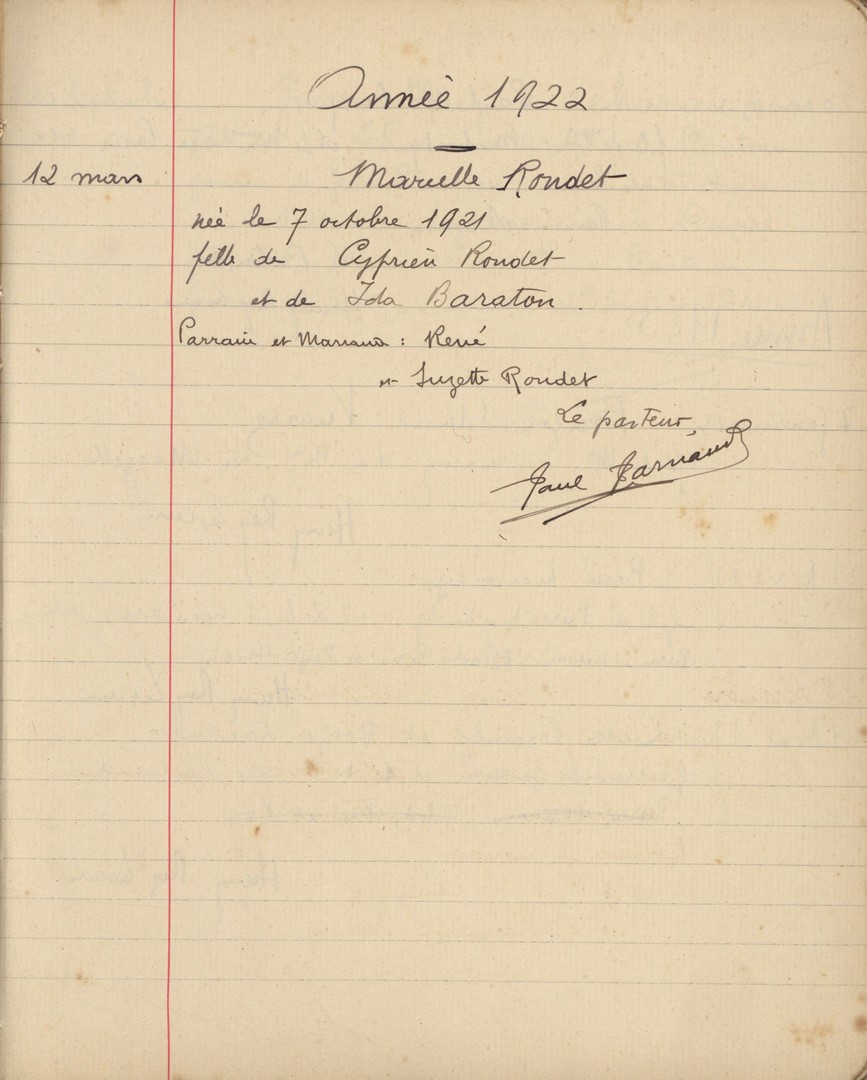 Année 1922
12 mars Marcelle Rondet
née le 7 octobre 1921
fille de Cyprien Rondet
et de Ida Baraton.
Parrain et Marraine : René
et Suzette Rondet
Le pasteur,
Paul Farnaud